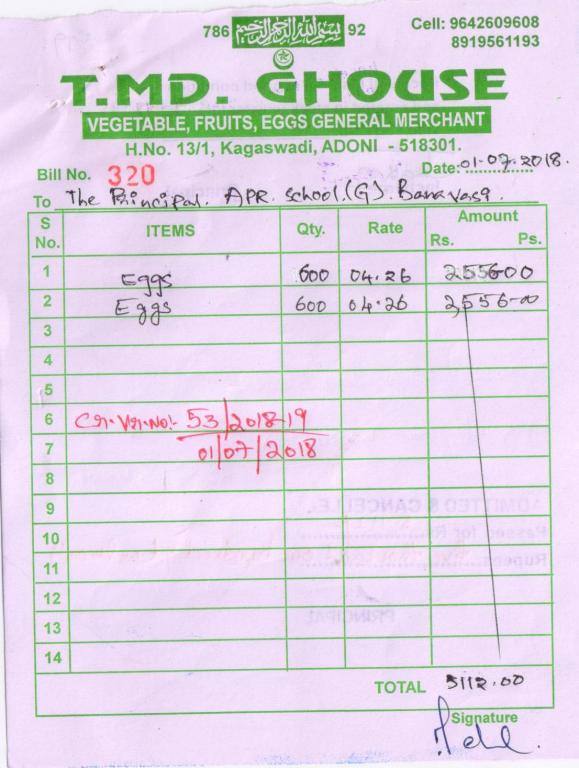 786 92
Cell: 9642609608
8919561193
T.MD. GHOUSE
VEGETABLE, FRUITS, EGGS GENERAL MERCHANT
H.No. 13/1, Kagaswadi, ADONI - 518301.
Bill No. 320
Date: 01-07-2018.
To The Principal. APR. School.(G). Banavasi.
S No. ITEMS Qty. Rate Amount Rs. Ps.
1 Eggs 600 04.26 2,556-00
2 Eggs 600 04.26 2,556-00
3
4
5
6 Cr.Vr.No:- 53/2018-19
7 01/07/2018
8
9
10
11
12
13
14
TOTAL 5112.00
Signature